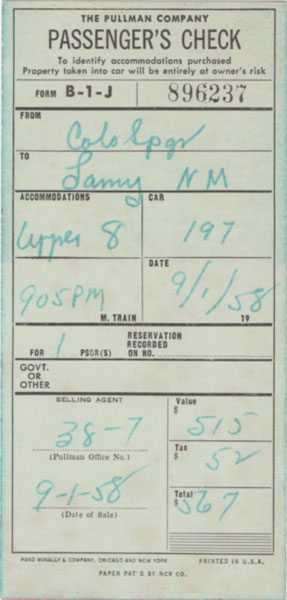 THE PULLMAN COMPANY
PASSENGER'S CHECK
To identify accommodations purchased
Property taken into car will be entirely at owner's risk
FORM B-1-J 896237
FROM
Colo Spgs
TO
Lamy N M
ACCOMMODATIONS CAR
Upper 8 197
DATE
905PM 9/1/58
M. TRAIN 19
FOR 1 PSGR(S) RESERVATION RECORDED ON NO.
GOVT.
OR
OTHER
SELLING AGENT Value
$ 515
38-7
(Pullman Office No.) Tax
$ 52
9-1-58 Total
$ 567
(Date of Sale)
RAND MCNALLY & COMPANY, CHICAGO AND NEW YORK PRINTED IN U.S.A.
PAPER PAT'D BY NCR CO.